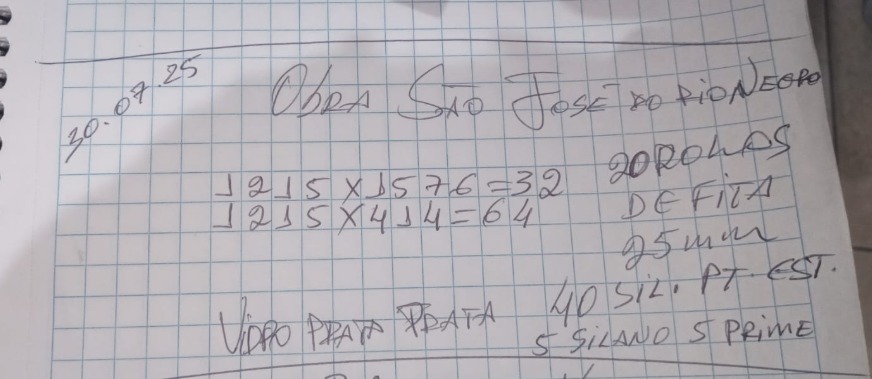 30.07.25
OBRA SÃO JOSÉ DO RIO NEGRO
1215 X 1576 = 32
1215 X 414 = 64
20 ROLOS
DE FITA
25 mm
40 SIL. PT. EST.
VIDRO PRATA PRATA
5 SILANO 5 PRIME